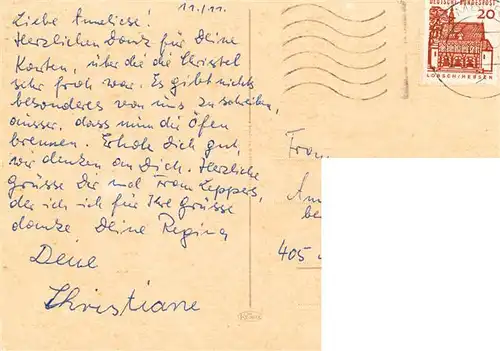 11./11.
Liebe Anneliese!
Herzlichen Dank für Deine
Karten, über die die Christel
sehr froh war. Es gibt nichts
besonderes von uns zu schreiben,
ausser, dass nun die Öfen
brennen. Erhole Dich gut,
wir denken an Dich. Herzliche
Grüsse Dir und Frau Leppers,
der ich ich für Ihre Grüsse
danke Deine Regina
Deine
Christiane
DEUTSCHE BUNDESPOST
20
LORSCH/HESSEN
Frau
405